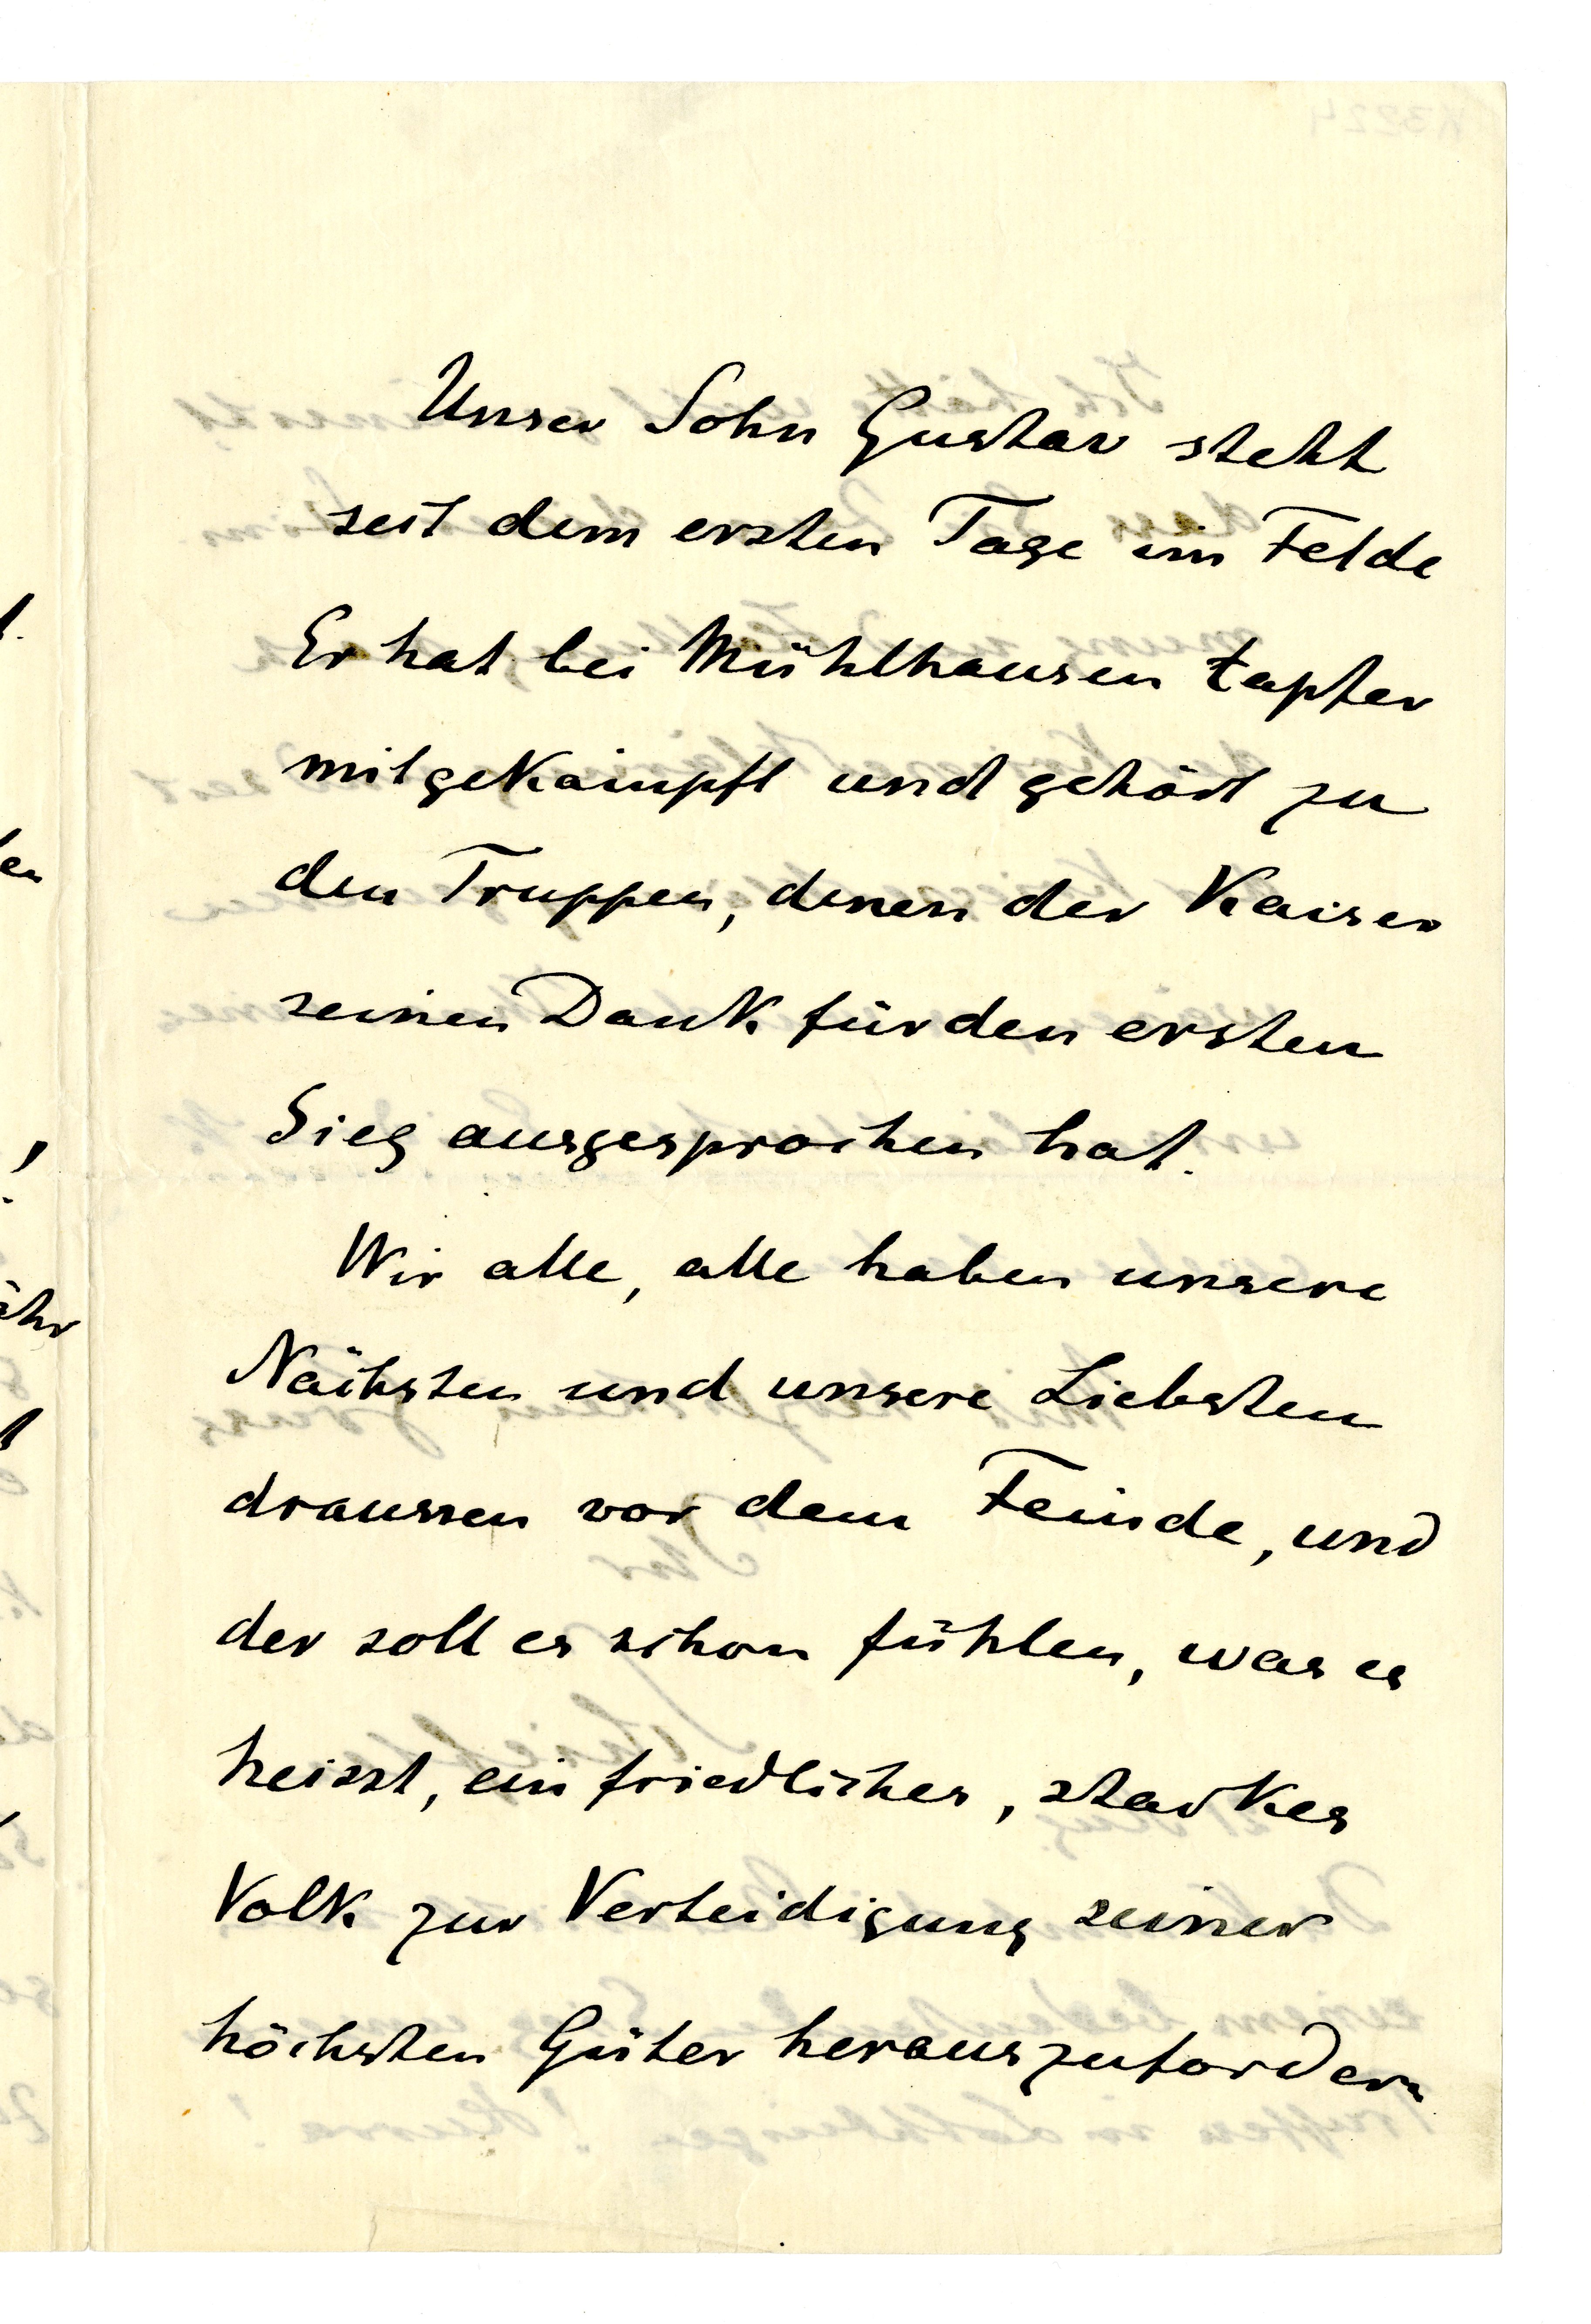 Unser Sohn Gustav steht
seit dem ersten Tage im Felde
Er hat bei Mühlhausen tapfer
mitgekämpft und gehört zu
den Truppen, denen der Kaiser
seinen Dank für den ersten
Sieg ausgesprochen hat.
Wir alle, alle haben unsere
Nächsten und unsere Liebsten
draussen vor dem Feinde, und
der soll es schon fühlen, was es
heisst, ein friedliches, starkes
Volk zur Verteidigung seiner
höchsten Güter herauszufordern